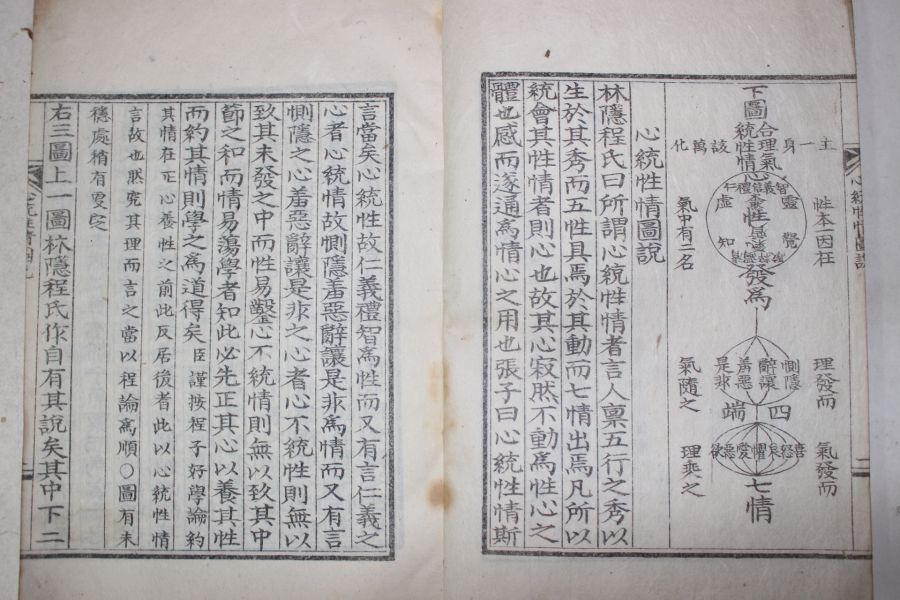 心統性情圖說
下圖
合理氣
統性情
主一身
該萬化
智義信禮仁
心
虛靈
知覺
性本一因在
氣中有二名
發爲
惻隱
辭讓
羞惡
是非
四端
理發而
氣隨之
喜怒哀懼愛惡欲
七情
氣發而
理乘之
心統性情圖說
林隱程氏曰所謂心統性情者言人稟五行之秀以
生於其秀而五性具焉於其動而七情出焉凡所以
統會其性情者則心也故其心寂然不動爲性心之
體也感而遂通爲情心之用也張子曰心統性情斯
言當矣心統性故仁義禮智爲性而又有言仁義之
心者心統情故惻隱羞惡辭讓是非爲情而又有言
惻隱之心羞惡辭讓是非之心者心不統性則無以
致其未發之中而性易鑿心不統情則無以致其中
節之和而情易蕩學者知此必先正其心以養其性
而約其情則學之爲道得矣臣謹按程子好學論約
其情在正心養性之前此反居後者此以心統性情
言故也然究其理而言之當以程論爲順○圖有未
穩處稍有更定
右三圖上一圖林隱程氏作自有其說矣其中下二